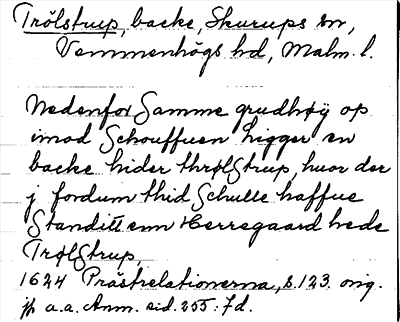 Trölstrup, backe, Skurups sn,
Vemmenhögs hd, Malm. l.
Nedenfor Samme grudhøÿ op
imod Schouffuen ligger en
backe hider thrølstrup, huor der
j fordum thid Schulle haffue
Standitt enn Herregaard hede
Trølstrup,
1624 Prästrelationerna, s. 123. orig.
jfr a.a. Anm. sid. 255: 7d.